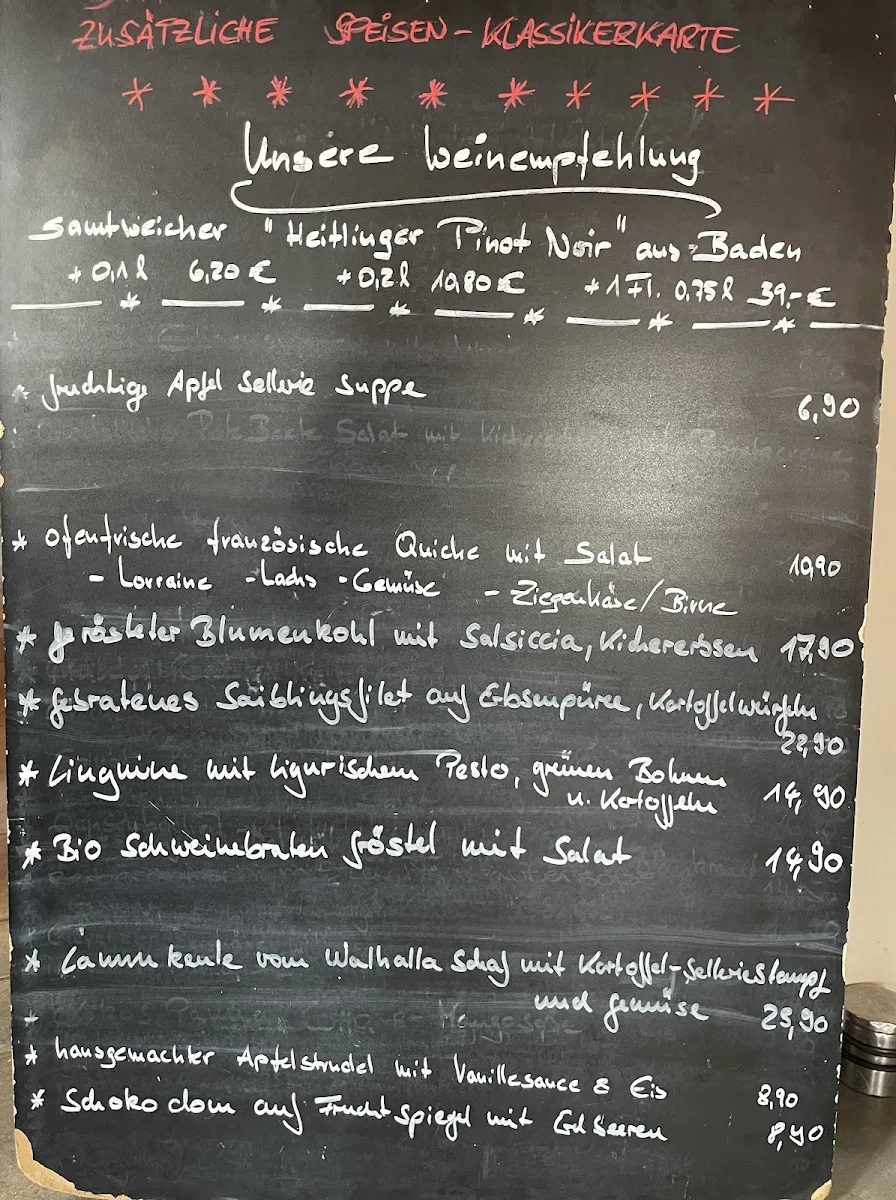 ZUSÄTZLICHE SPEISEN - KLASSIKERKARTE
* * * * * * * * * *
Unsere Weinempfehlung
Samtweicher "Heitlinger Pinot Noir" aus Baden
* 0,1 l 6,20 € * 0,2 l 10,80 € * 1 Fl. 0,75 l 39,- €
* fruchtige Apfel Sellerie Suppe
6,90
* ofenfrische französische Quiche mit Salat 10,90
- Lorraine - Lachs - Gemüse - Ziegenkäse / Birne
* gerösteter Blumenkohl mit Salsiccia, Kichererbsen 17,90
* gebratenes Saiblingsfilet auf Erbsenpüree, Kartoffelwürfeln
22,90
* Linguine mit ligurischem Pesto, grünen Bohnen
u. Kartoffeln 14,90
* Bio Schweinebraten Gröstel mit Salat 14,90
* Lammkeule vom Walhalla Schaf mit Kartoffel-Selleriestampf
und Gemüse 25,90
* hausgemachter Apfelstrudel mit Vanillesauce & Eis 8,90
* Schokodom auf Fruchtspiegel mit Erdbeeren 8,90